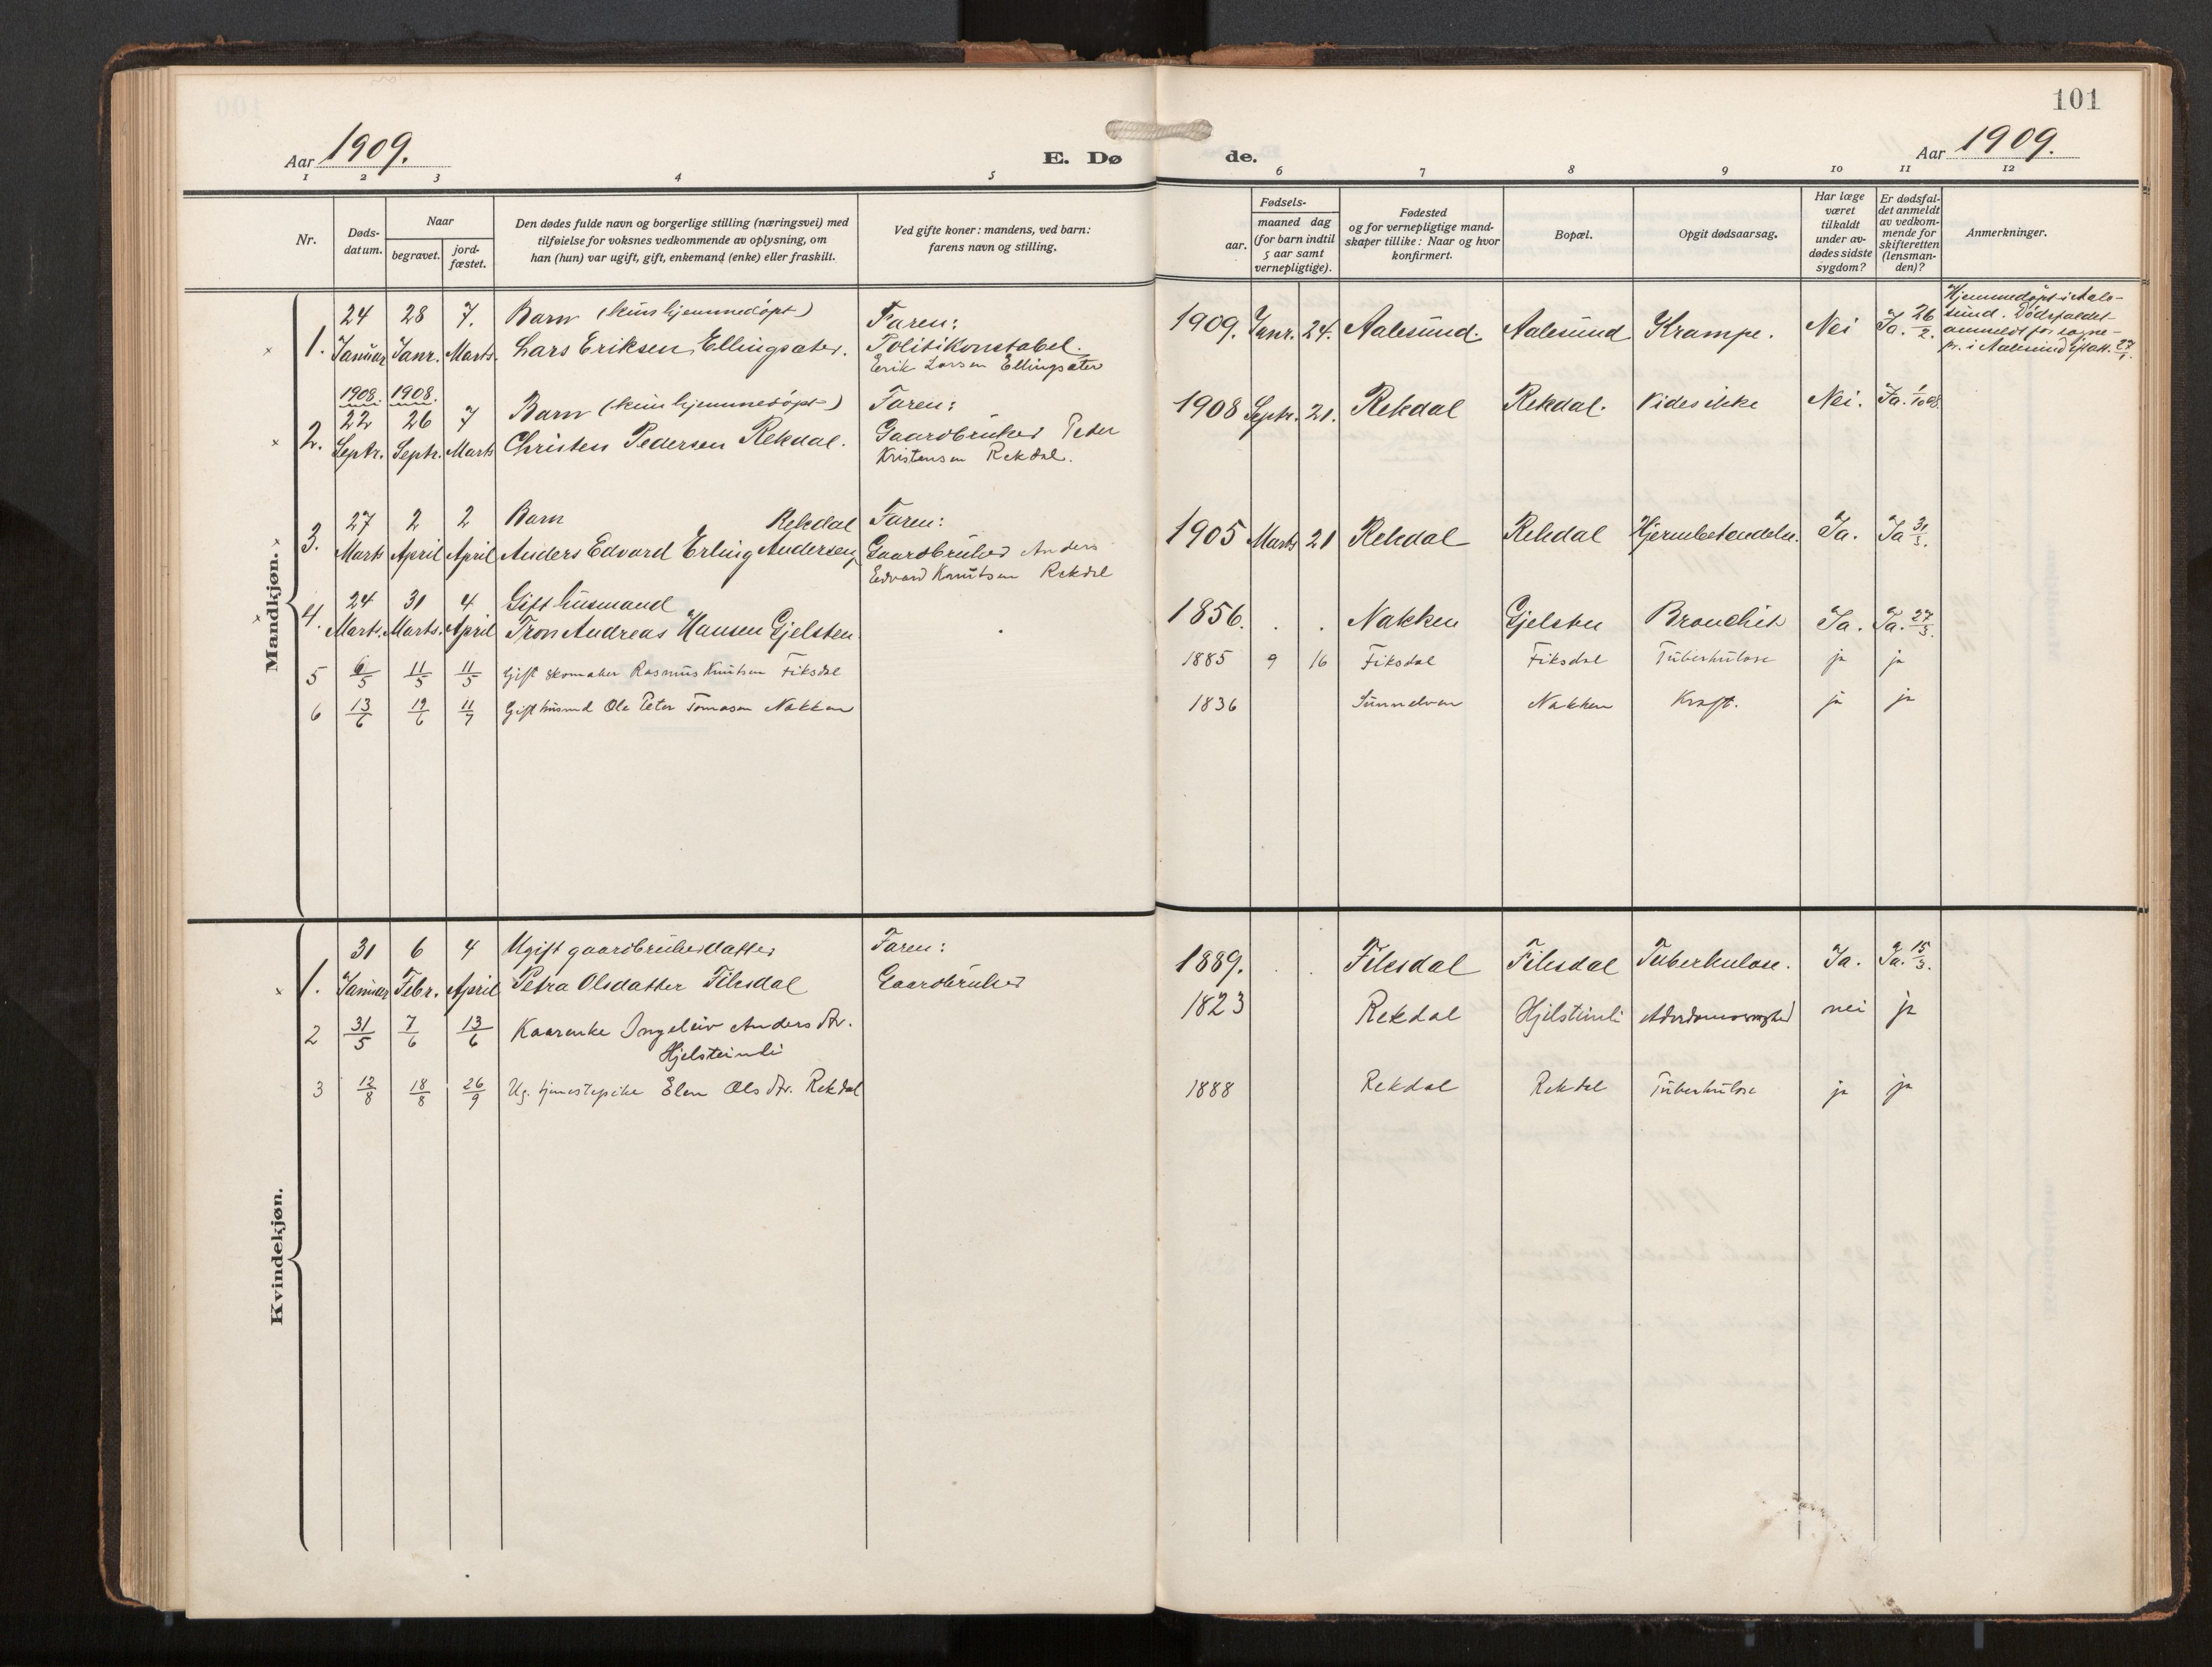 101
Aar 1909.
E. Dø
de.
Aar 1909.
1 2 3 4 5 6 7 8 9 10 11 12
Nr.
Døds-
datum.
Naar
begravet.
jord-
fæstet.
Den dødes fulde navn og borgerlige stilling (næringsvei) med
tilføielse for voksnes vedkommende av oplysning, om
han (hun) var ugift, gift, enkemand (enke) eller fraskilt.
Ved gifte koner: mandens, ved barn:
farens navn og stilling.
Fødsels-
aar.
maaned dag
(for barn indtil
5 aar samt
vernepligtige).
Fødested
og for vernepligtige mand-
skaper tillike: Naar og hvor
konfirmert.
Bopæl.
Opgit dødsaarsag.
Har læge
været
tilkaldt
under av-
dødes sidste
sygdom?
Er dødsfal-
det anmeldt
av vedkom-
mende for
skifteretten
(lensman-
den)?
Anmerkninger.
Mandkjøn.
24 28 7. Barn (kun hjemmedöpt) Faren:
1. Januar Janr. Marts. Lars Eriksen Ellingsæter. Politikonstabel.
Erik Larsen Ellingsæter
1909. Janr. 24. Aalesund. Aalesund Krampe. Nei Ja. 26/2.
Hjemmedöpt i Aale-
sund. Dödsfaldet
anmeldt for sogne-
pr. i Aalesund 27/1.
1908. 1908.
22 26 7 Barn (kun hjemmedöpt) Faren:
2. Septr. Septr. Marts Christen Pedersen Rekdal. Gaardbruker Peter
Kristensen Rekdal.
1908 Septr. 21. Rekdal Rekdal. Vides ikke Nei. Ja. 1/10 08.
27 2 2 Barn Rekdal Faren:
3. Marts April April Anders Edvard Erling Andersen, Gaardbruker Anders
Edvard Knutsen Rekdal
1905 Marts 21 Rekdal Rekdal Hjernebetændelse. Ja. Ja 31/3.
24 31 4 Gift husmand
4. Marts. Marts. April Tron Andreas Hansen Gjelsten
1856. . . Nakken Gjelsten Bronchit Ja. Ja. 27/3.
5 6/5 11/5 11/5 Gift skomaker Rasmus Knutsen Fiksdal
1885 9 16 Fiksdal Fiksdal Tuberkulose ja ja
6 13/6 19/6 11/7 Gift husmd Ole Peter Tomasen Nakken
1836 Sunnelven Nakken Kræft. ja ja
Kvindekjøn.
31 6 4 Ugift gaardbrukerdatter Faren:
1. Januar Febr. April Petra Olsdatter Fiksdal Gaardbruker
1889. . . Fiksdal Fiksdal Tuberkulose. Ja. Ja. 15/3.
2 31/5 7/6 13/6 Kaarenke Ingeleiv Anders dtr.
Hjelsteinli
1823 Rekdal Hjelsteinli nei ja
3 12/8 18/8 26/9 Ug. tjenestepike Elen Ols dtr. Rekdal
1888 Rekdal Rekdal Tuberkulose ja ja